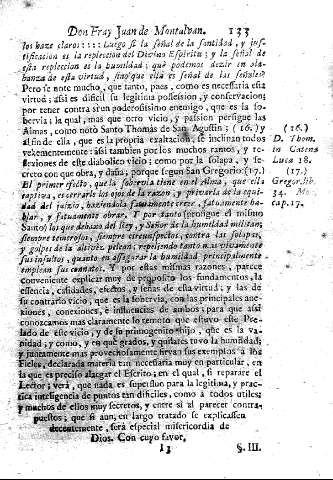 Don Fray Juan de Montalvan. 133
los haze claro: : : : Luego si la señal de la santidad, y jus-
tificacion es la replecion del Divino Espiritu; y la señal de
esta repleccion es la humildad; què podemos dezir en ala-
bança de esta virtud, sino que ella es señal de las señales?
Pero se note mucho, que tanto, paes, como es necesaria esta
virtud; assi es dificil su legitima possession, y conservacion;
por tener contra si un poderosissimo enemigo, que es la so-
bervia; la qual, mas que otro vicio, y passion persigue las
Almas, como notò Santo Thomas de San Agustin; (16.) y
al fin de ella, que es la propria exaltacion, se inclinan todos
vehementemente: assi tambien por los muchos ramos, y te-
flexiones de este diabolico vicio; como por la solapa, y se-
creto con que obra, y daña; porque segun San Gregorio: (17.)
El primer efecto, que la sobervia tiene en el Alma, que ella
captiva, es cerrarle los ojos de la razon, y privarla de la equi-
dad del juizio, haziendola fatuamente creer, fatuamente ha-
blar, y fatuamente obrar. Y por tanto (prosigue el mismo
Santo) los que debaxo del Rey, y Señor de la humildad militan;
siempre temerosos, siempre circunspectos, contra las solapas,
y golpes de la altivèz, pelean; repeliendo tanto mas vivamente
sus insultos, quanto en assegurar la humildad principalmente
emplean sus connatos. Y por estas mismas razones, parece
conveniente explicar muy de proposito los fundamentos, la
essencia, calidades, efectos, y señas de esta virtud; y las de
su contrario vicio, que es la sobervia, con las principales ane-
xiones, conexiones, è influencias de ambos; para que assi
conozcamos mas claramente lo remoto que estuvo este Pre-
lado de este vicio, y de su primogenito hijo, que es la va-
nidad; y como, y en què grados, y quilates tuvo la humildad;
y juntamente mas provechosamente sirvan sus exemplos à los
Fieles, declarada materia tan necessaria muy en particular, en
la que es preciso alargar el Escrito; en el qual, si reparare el
Lector; verà, que nada es superfluo para la legitima, y prac-
tica inteligencia de puntos tan dificiles, como à todos utiles;
y muchos de ellos muy secretos, y entre si al parecer contra-
puestos; que si aun, en largo tratado se explicassen
decentemente, serà especial misericordia de
Dios. Con cuyo favor,
13
§. III.
(16.)
D. Thom.
in Catena
Luca 18.
(17.)
Gregor. lib.
34. Mo.
cap. 17.